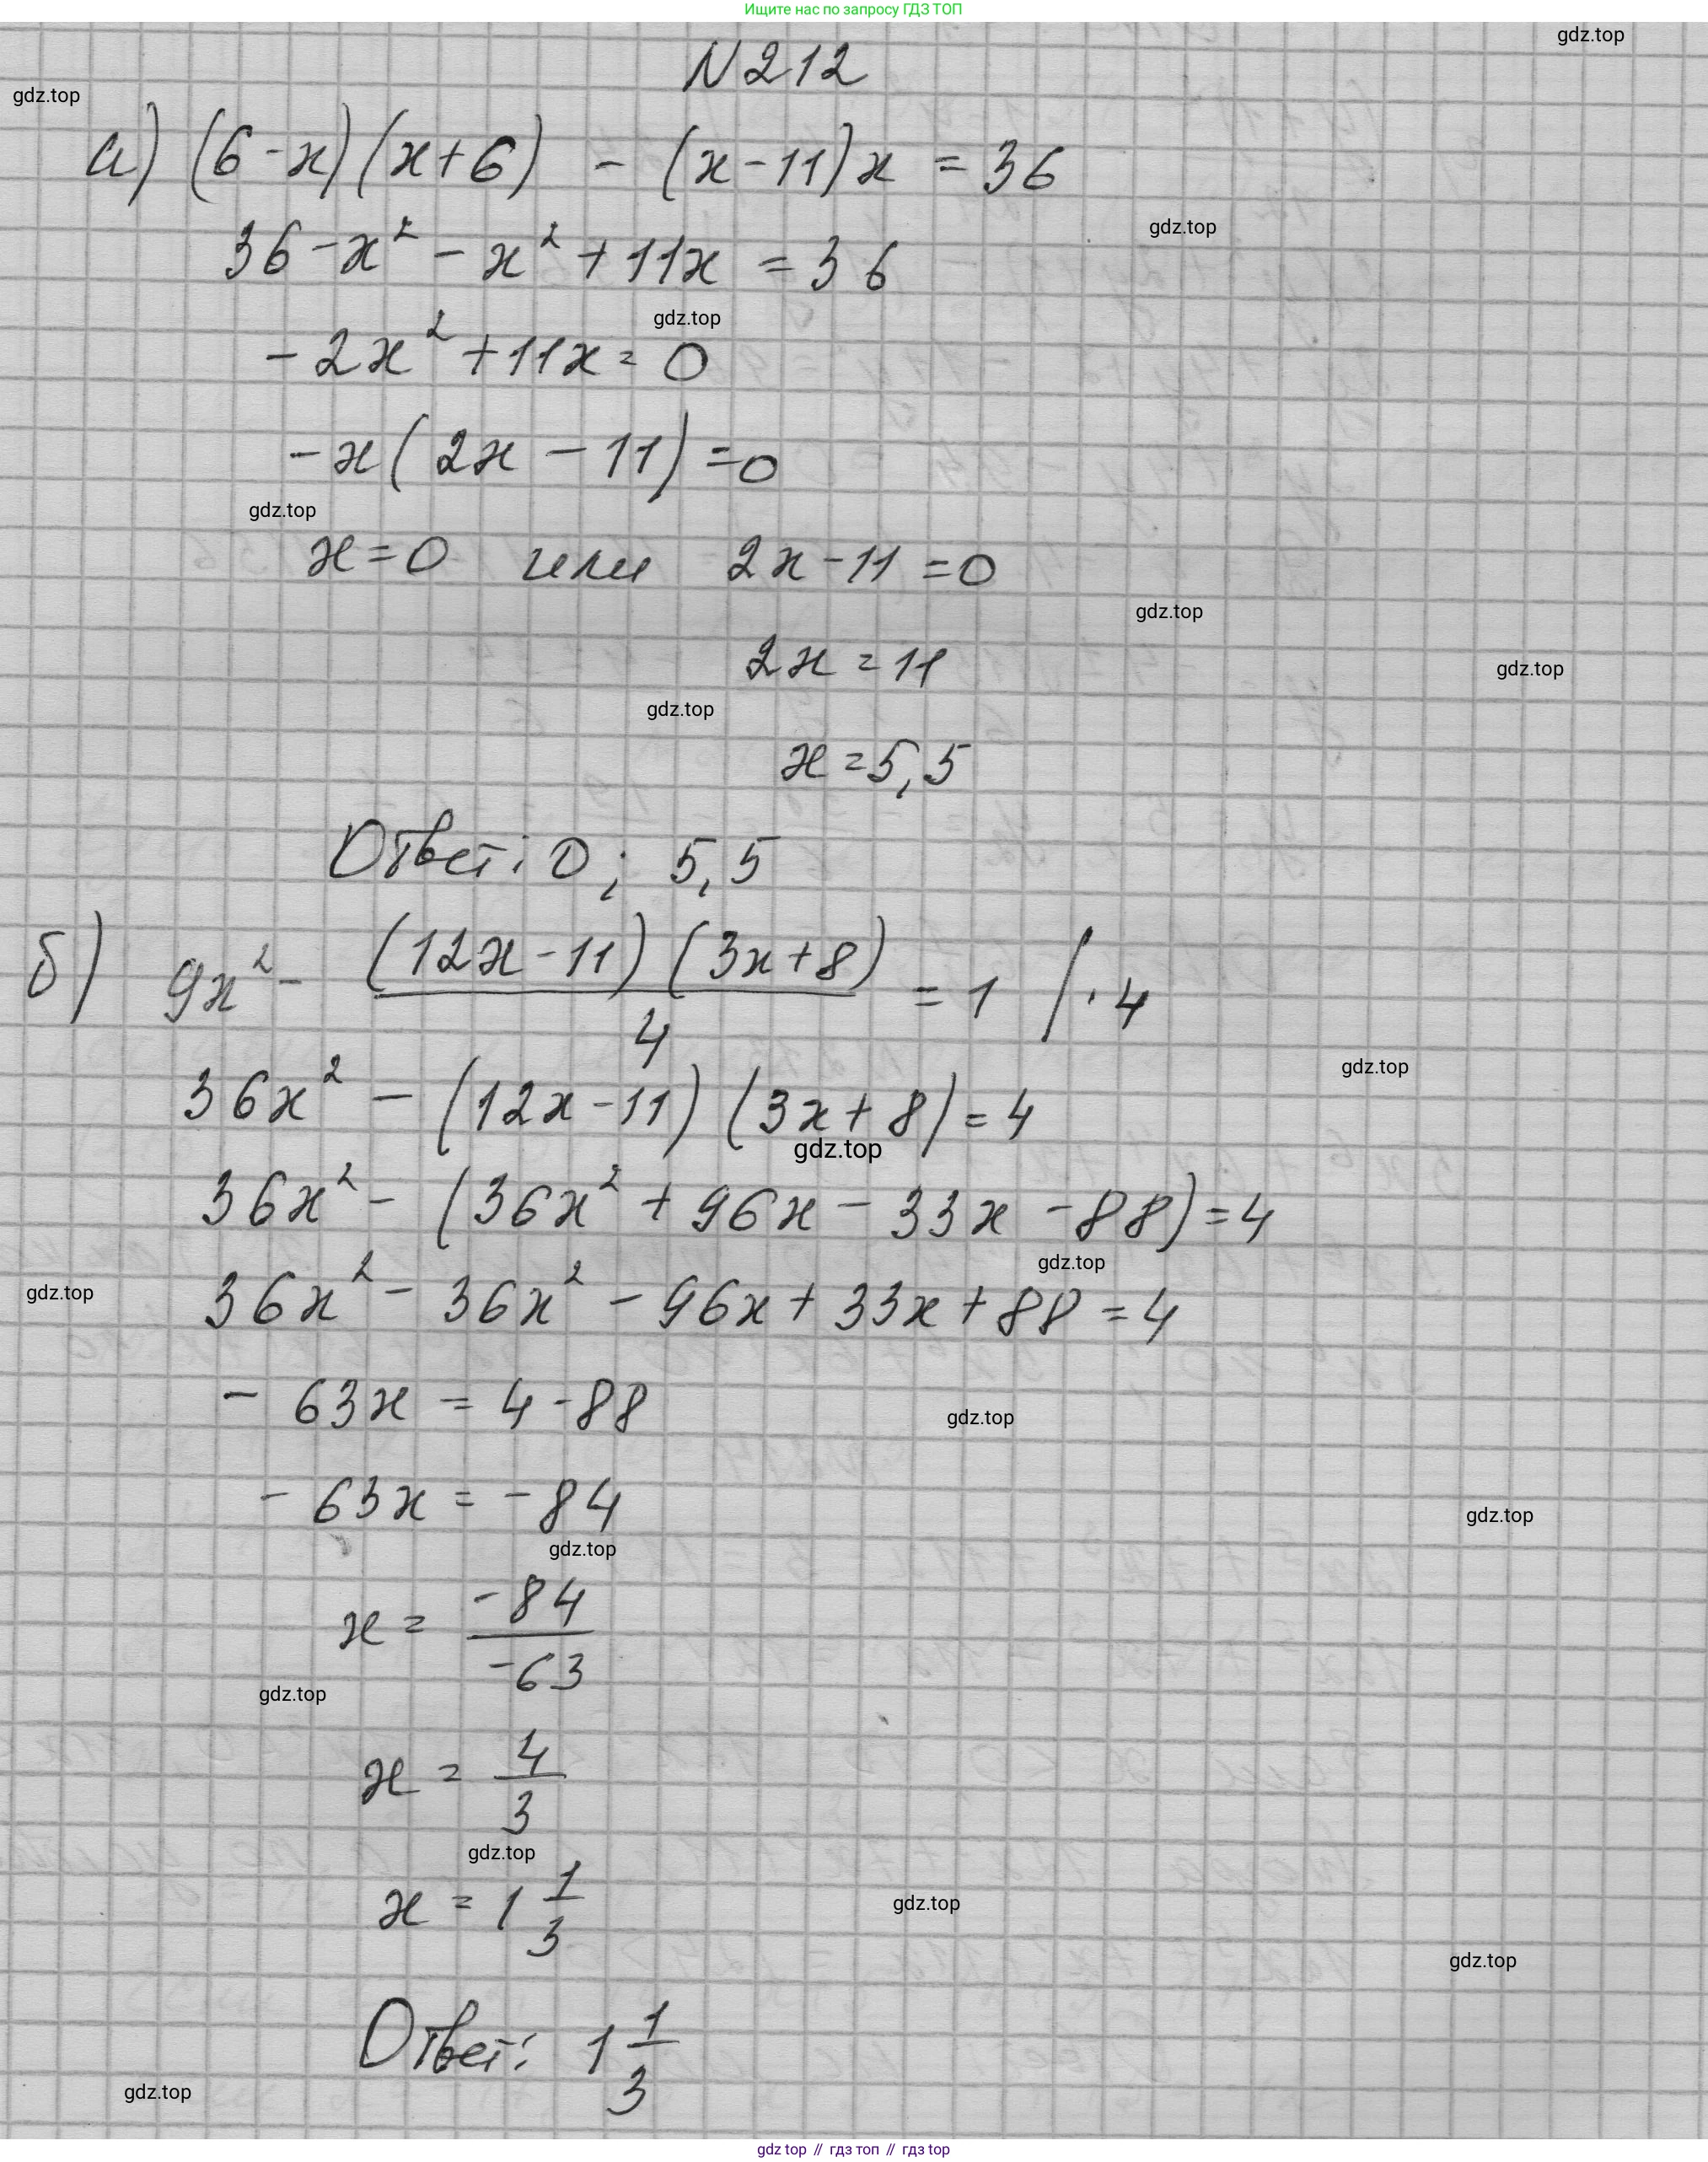 Ищите нас по запросу ГДЗ ТОП
gdz.top
N 212
gdz.top
а) (6-x)(x+6) - (x-11)x = 36
gdz.top
36-x² - x² + 11x = 36
gdz.top
-2x² + 11x = 0
-x(2x - 11) = 0
gdz.top
x = 0 или 2x-11 = 0
gdz.top
2x = 11
gdz.top
gdz.top
x = 5,5
Ответ: 0; 5,5
б) 9x² - (12x-11)(3x+8)/4 = 1 /·4
gdz.top
36x² - (12x-11)(3x+8) = 4
gdz.top
36x² - (36x² + 96x - 33x - 88) = 4
gdz.top
gdz.top
36x² - 36x² - 96x + 33x + 88 = 4
- 63x = 4-88
gdz.top
- 63x = -84
gdz.top
gdz.top
x = -84/-63
gdz.top
x = 4/3
gdz.top
x = 1 1/3
gdz.top
gdz.top
Ответ: 1 1/3
gdz.top
gdz top // гдз топ // гдз top